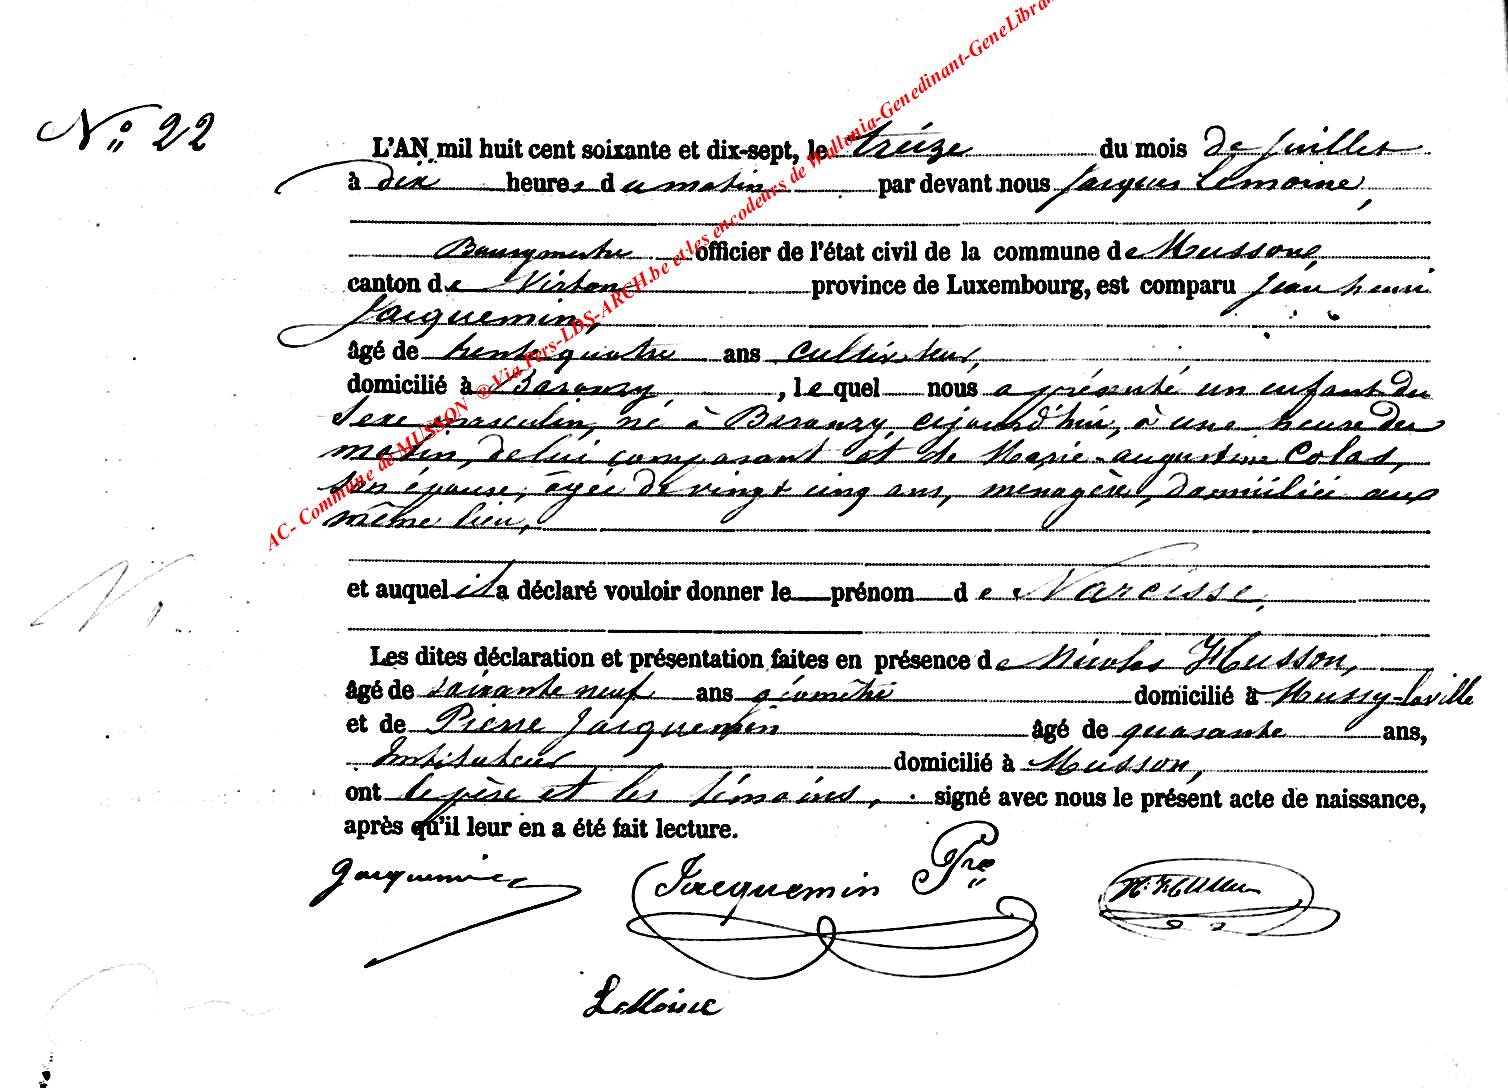 N° 22
L'AN mil huit cent soixante et dix-sept, le treize du mois de Juillet
à dix heures du matin par devant nous Jacques Lemoine,
Bourgmestre officier de l'état civil de la commune de Musson,
canton de Virton province de Luxembourg, est comparu Jean henri
Jacquemin,
âgé de trente quatre ans cultivateur,
domicilié à Baranzy, le quel nous a présenté un enfant du
sexe masculin, né à Baranzy, cejourd'hui, à une heure du
matin, de lui comparant et de Marie-augustine Colas,
son épouse, âgée de vingt cinq ans, ménagère, domiciliée au
même lieu,
et auquel il a déclaré vouloir donner le prénom de Narcisse,
Les dites déclaration et présentation faites en présence de Nicolas Husson,
âgé de soixante neuf ans géomètre domicilié à Mussy-laville
et de Pierre Jacquemin âgé de quarante ans,
Instituteur domicilié à Musson,
ont le père et les témoins, signé avec nous le présent acte de naissance,
après qu'il leur en a été fait lecture.
Jacquemin Jacquemin Pre N. Husson
Lemoine
AC- Commune de MUSSON ® Via Pers-LDS-ARCH.be et les encodeurs de Wallonia-Genedinant-GeneLibra